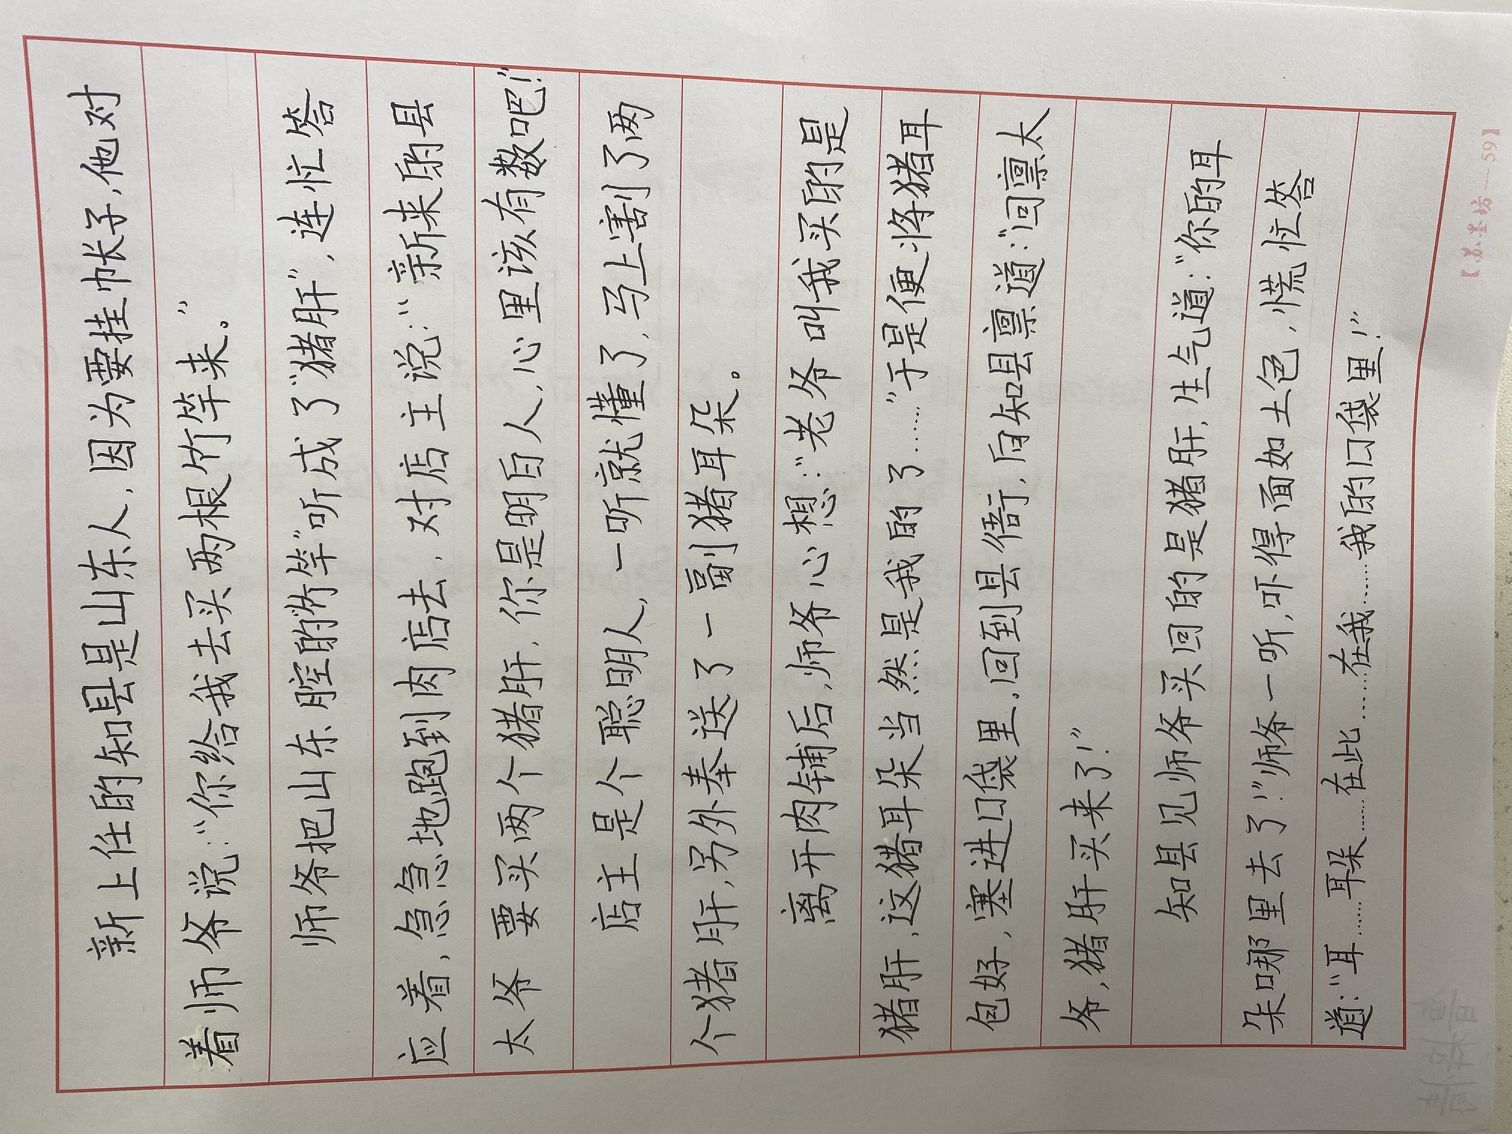 新上任的知县是山东人，因为要挂帐子，他对
着师爷说：“你给我去买两根竹竿来。”
师爷把山东腔的“竹竿”听成了“猪肝”，连忙答
应着，急急地跑到肉店去，对店主说：“新来的县
太爷要买两个猪肝，你是明白人，心里该有数吧！”
店主是个聪明人，一听就懂了，马上割了两
个猪肝，另外奉送了一副猪耳朵。
离开肉铺后，师爷心想：“老爷叫我买的是
猪肝，这猪耳朵当然是我的了……”于是便将猪耳
包好，塞进口袋里，回到县衙，向知县禀道：“回禀太
爷，猪肝买来了！”
知县见师爷买回的是猪肝，生气道：“你的耳
朵哪里去了！”师爷一听，吓得面如土色，慌忙答
道：“耳……耳朵……在此……在我……我的口袋里！”
【苏墨坊—59】